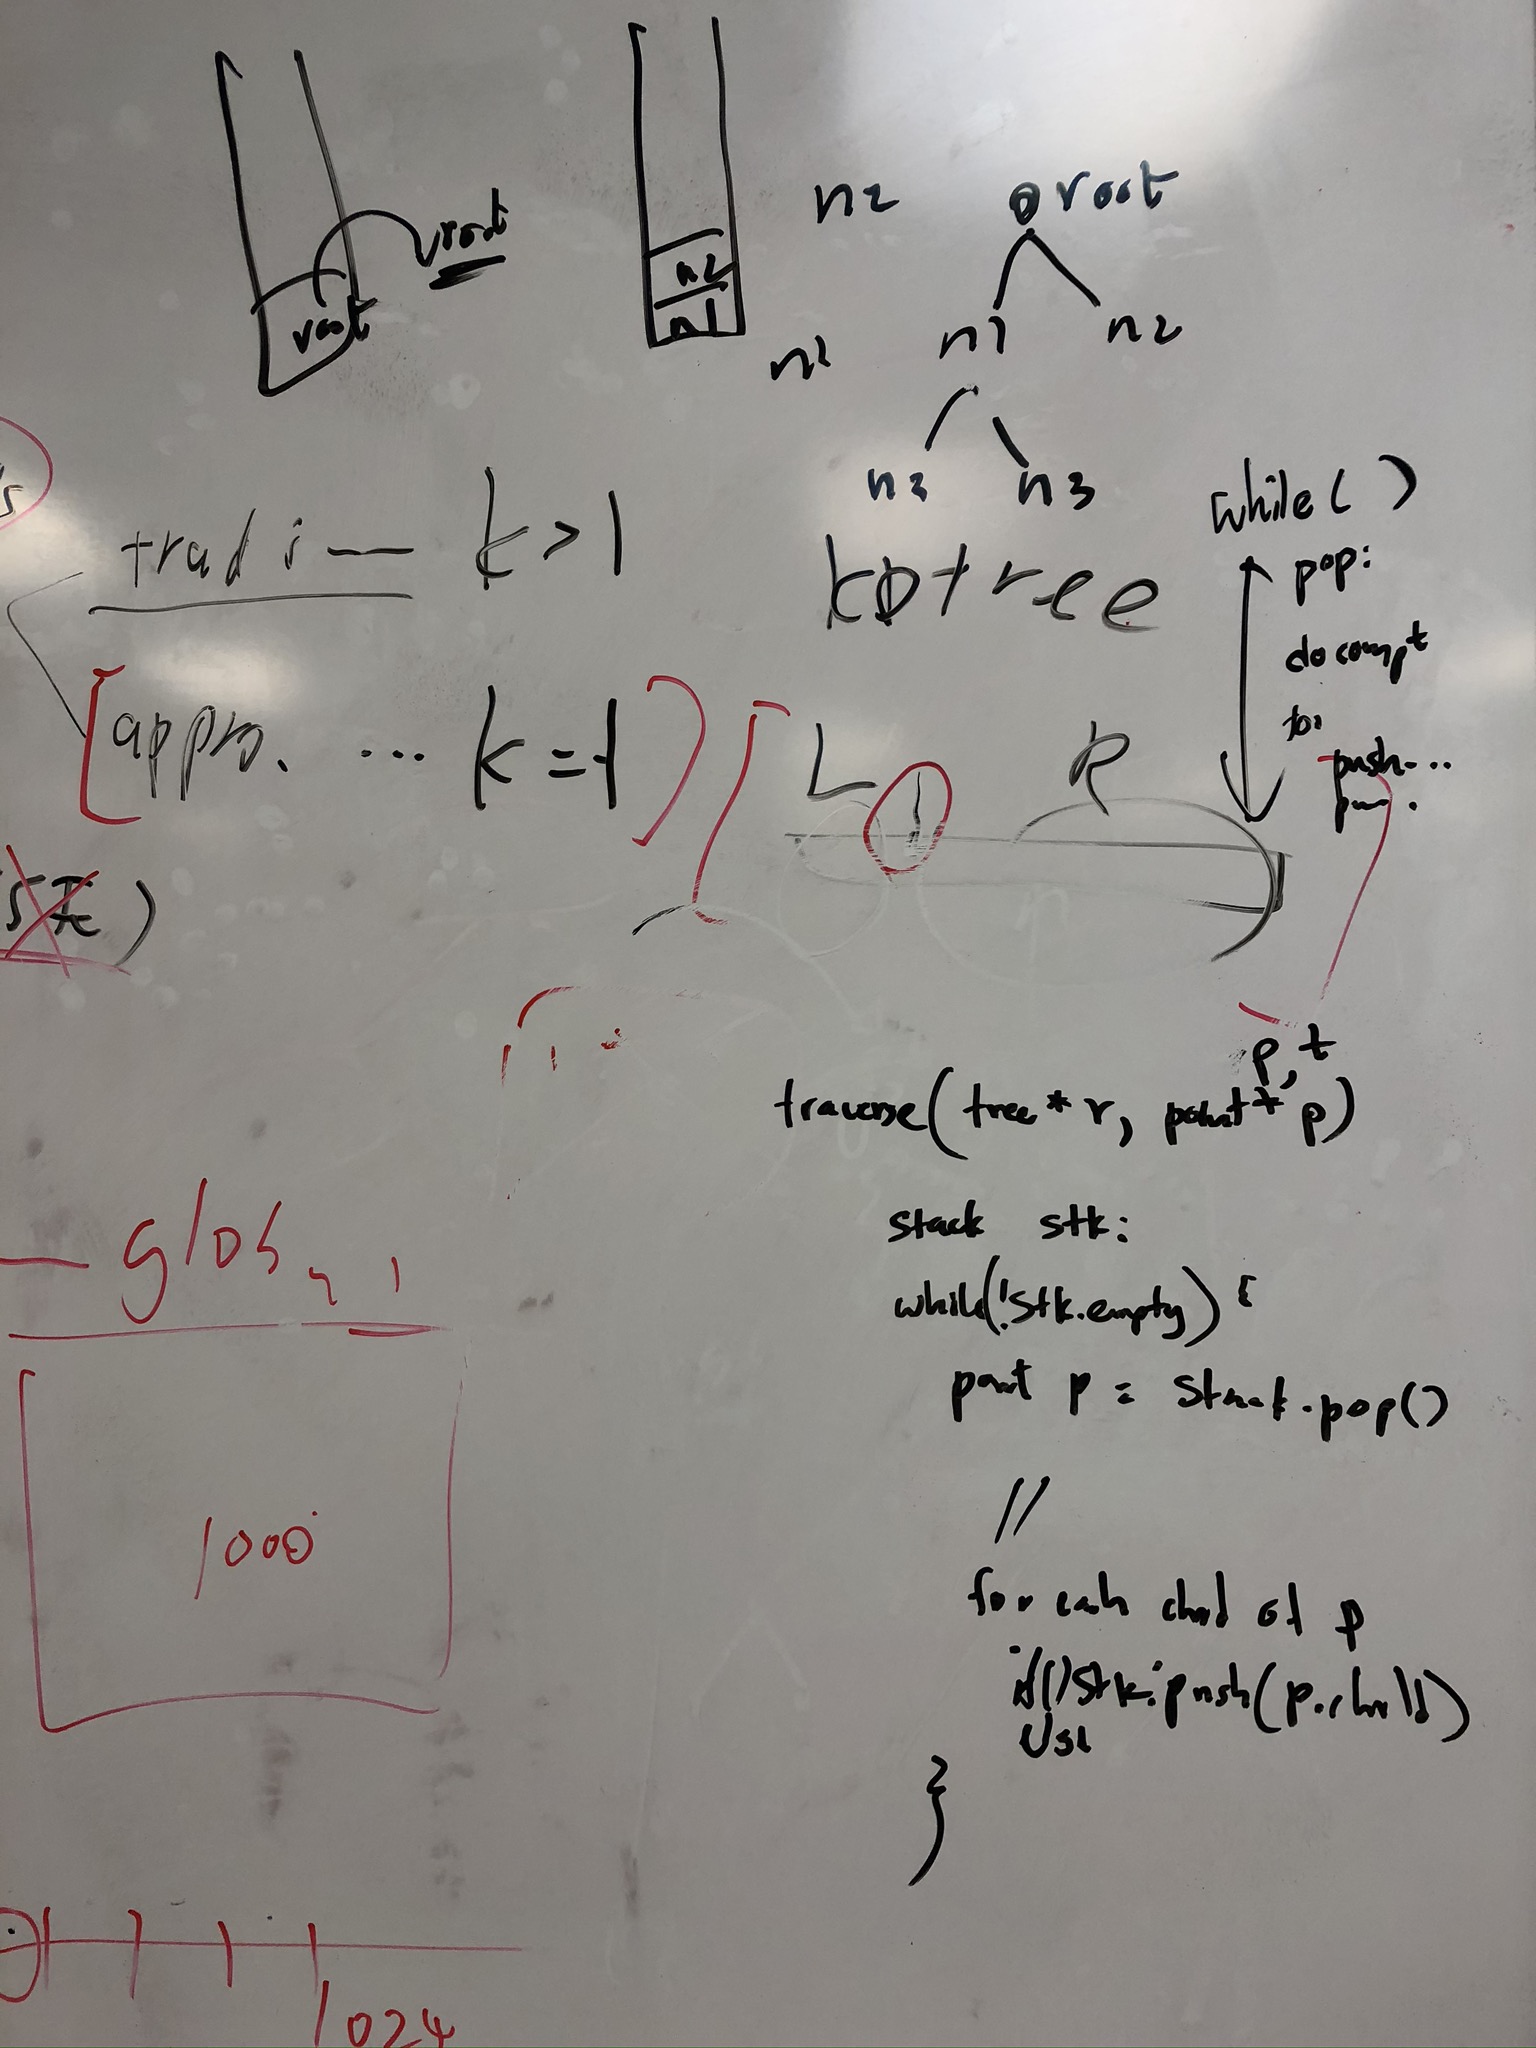 root
root
n2
n1
n2
n1
root
n1
n2
n3
tradi— k > 1
[appro. ... k = 1]
KD tree
L
R
while( )
pop:
do compt
for
push...
p, t
traverse(tree* r, point* p)
stack stk:
while(!stk.empty) {
point p = stack.pop()
//
for each child of p
if() stk.push(p.child)
}
1000
1024